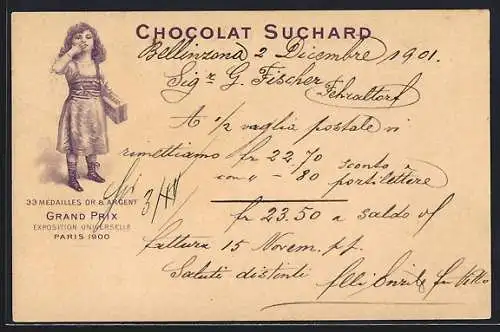 CHOCOLAT SUCHARD
Bellinzona 2 Dicembre 1901.
Sigr G. Fischer
Fehraltorf
A 1/2 vaglia postale vi
rimettiamo fr 22.70
con " - 80 sconto a
portilettere
3/XII
fr 23.50 a saldo vs/
fattura 15 Novem. pp.
Saluti distinti
flli
33 MEDAILLES OR & ARGENT
GRAND PRIX
EXPOSITION UNIVERSELLE
PARIS 1900